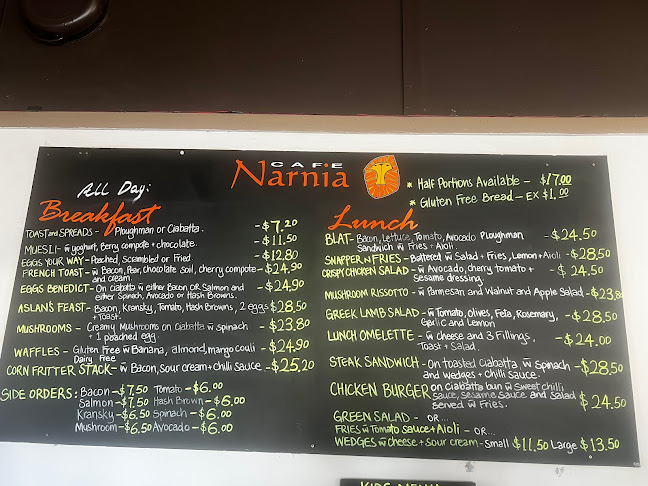 CAFE
Narnia
All Day:
Breakfast
TOAST and SPREADS - Ploughman or Ciabatta. - $7.20
MUESLI - w yoghurt, Berry compote + chocolate. - $11.50
EGGS YOUR WAY - Poached, Scrambled or Fried. - $12.80
FRENCH TOAST - w Bacon, Pear, chocolate soil, cherry compote - $24.90
and cream.
EGGS BENEDICT - On ciabatta w either Bacon OR Salmon and - $24.90
either Spinach, Avocado or Hash Browns.
ASLAN'S FEAST - Bacon, Kransky, Tomato, Hash Browns, 2 eggs $28.50
+ Toast.
MUSHROOMS - Creamy Mushrooms on Ciabatta w Spinach - $23.80
+ 1 poached egg.
WAFFLES - Gluten Free w Banana, almond, mango couli - $24.90
Dairy Free
CORN FRITTER STACK - w Bacon, Sour cream + chilli sauce - $25.20
SIDE ORDERS: Bacon - $7.50 Tomato - $6.00
Salmon - $7.50 Hash Brown - $6.00
Kransky - $6.50 Spinach - $6.00
Mushroom - $6.50 Avocado - $6.00
* Half Portions Available - $17.00
* Gluten Free Bread - EX $1.00
Lunch
BLAT - Bacon, Lettuce, Tomato, Avocado Ploughman - $24.50
Sandwich w Fries + Aioli
SNAPPER n FRIES - Battered w Salad + Fries, Lemon + Aioli - $28.50
CRISPY CHICKEN SALAD - w Avocado, cherry tomato + - $24.50
Sesame dressing.
MUSHROOM RISSOTTO - w Parmesan and Walnut and Apple Salad - $23.80
GREEK LAMB SALAD - w Tomato, Olives, Feta, Rosemary, - $28.50
Garlic and Lemon
LUNCH OMELETTE - w cheese and 3 Fillings, - $24.00
Toast + Salad.
STEAK SANDWICH - On toasted ciabatta w Spinach - $28.50
and wedges + chilli Sauce.
CHICKEN BURGER on Ciabatta bun w Sweet chilli
sauce, sesame sauce and Salad $24.50
served w Fries.
GREEN SALAD - OR...
FRIES w Tomato sauce + Aioli - OR...
WEDGES w cheese + sour cream - Small $11.50 Large $13.50
KIDS MENU